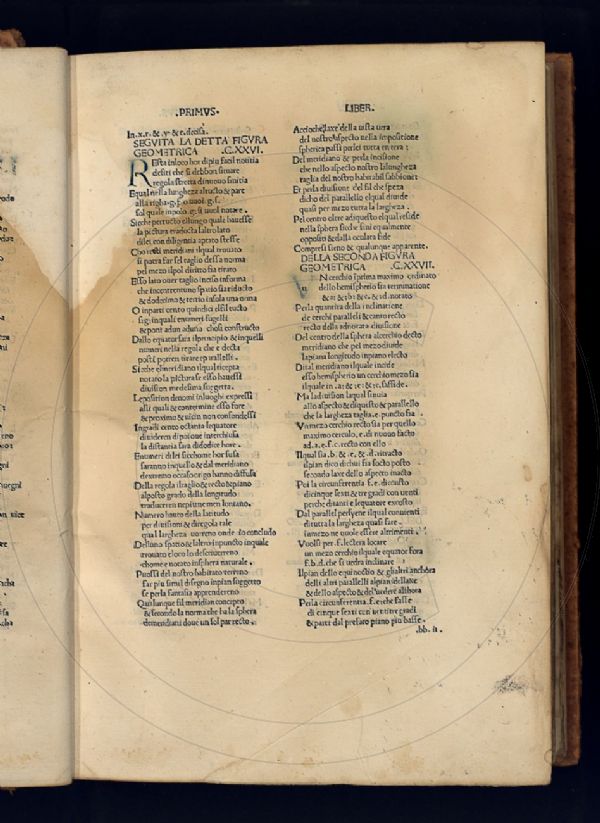 .PRIMVS.
In.x.r. & .v & r. decisa.
SEGVITA LA DETTA FIGVRA
GEOMETRICA .C.XXVI.
REsta inloco hor dipiu facil notitia
desiri che si debbon situare
regola stretta dinuouo sinitia
Equal nella lungheza alrusclo & pare
alla righa.g.f.o uuol.g.s.
sol quale inpolo.g.si uuol notare.
Sicche per tucto ellungo quale hauesse
la pictura traducta laltro lato
disei con diligentia aptato stesse
Cho resti meridiani ilqual trouato
si potra far sel taglio dessa norma
pel mezo ilpol diuiso fia tirato
Et lo lato ouer taglio inciso informa
che incontrerranno spatio sia riducto
& dodecima & tertio insola una norma
O inparti cento quindici elsil tucto
sigi inquali enumeri sugelli
& pont adun aduna chosi constructo
Dallo equator sara ilprincipio & inquelli
numeri nella regola che e decta
post potren tirare epiralleli.
Sicche elmeridiano ilqual ricepta
notato la pictura se esso hauessi
diuision medesima suggetta.
Le position denomi inluoghi expressi
alli quali & conterminé esso fore
& proximo & uicin non confondessi
Ingradi cento octanta lequatore
diuideren dipoi one interchiusa
la distantia sara didodice hore.
Enumeri delei sicchome hor susa
saranno inquello & dal meridiano
dextremo occaso origo hanno diffusa
Della regola ilraglio & recto & piano
alposto grado della lengitudo
traduceren nepiu ne men lontano.
Numero louro della latitudo
per diuisioni & diregola tale
qual largheza uorreno onde io concludo
Dessuno spatio & laltro inpuncto inquale
trouato eloro lo descriuerreno
chome e notato insphera naturale.
Puossi del nostro habitato terreno
far piu simil disegno inpian suggetto
se perla fantasia apprendereno
Qui lanque sil meridian concepto
& secondo la norma che ha la sphera
demeridiani doue un sol par recto.
LIBER.
Accioche laxe della uista uera
del nostro aspecto nella impositione
spherica passi per lei tutta entera:
Del meridiano & perla incisione
che nello aspecto nostro la lungheza
taglia del nostro habitabil sabbione:
Et perla diuisione del sil che speza
dicho del parallello elqual diuide
quasi per mezo tutta la largheza.
Pel centro oltre adiquesto elqual reside
nella sphera sicche sini equalmente
opposito & dalla oculara side
Compresi sieno & qualunque apparente.
DELLA SECONDA FIGVRA
GEOMETRICA .C.XXVII.
VN cerchio sprima maximo ordinato
dello hemisperio sia terminatione
& a: & b: & c. & .d. notato
Perla quantita della inclinatione
de cerchi paralleli & canto recto
recto della adnotata diuisione
Del centro della sphera alcerchio decto
meridiano che pel mezo diuide
lapiana longitudo inpiano electo
Dital meridiano ilquale incide
esso hemisperio un cerchio mezo sia
ilquale in .a: & .e: & .c. sasside.
Ma la diuision laqual sinuia
allo aspecto & disquisto & parallelo
che la largheza taglia.e. puncto sia.
Vn mezo cerchio recto sia per quello
maximo circulo .e. di nuouo facto
ad.a.e.f.c. recto con ello
Ilqual sia .b. & .e. & .d. ritracto
ilpian dico dichui sia socto posto
secondo laxe dello aspecto inacto
Poi la circunferentia .f.e. dicosto
dicinque sexti & tre gradi con uenti
perche ditanti e loequatore exposto
Dal parallel persyene ilqual conuienti
ditutta la largheza quasi fare
inmezo ne uuole essere altrimenti.
Vuolsi per .f. lectera locare
un mezo cerchio ilquale equinoctiora
f.b.d. che si uedra inclinare
Ilpian dello equinoctio & glialtri anchora
delli altri paralleli alpian dellaxe
& dello aspecto & del uedere allhora
Perla circunferentia .f.e. che fasse
di cinque sexti con uentitre gradi
& parti dal presaro piano piu basse.
.bb. ii.